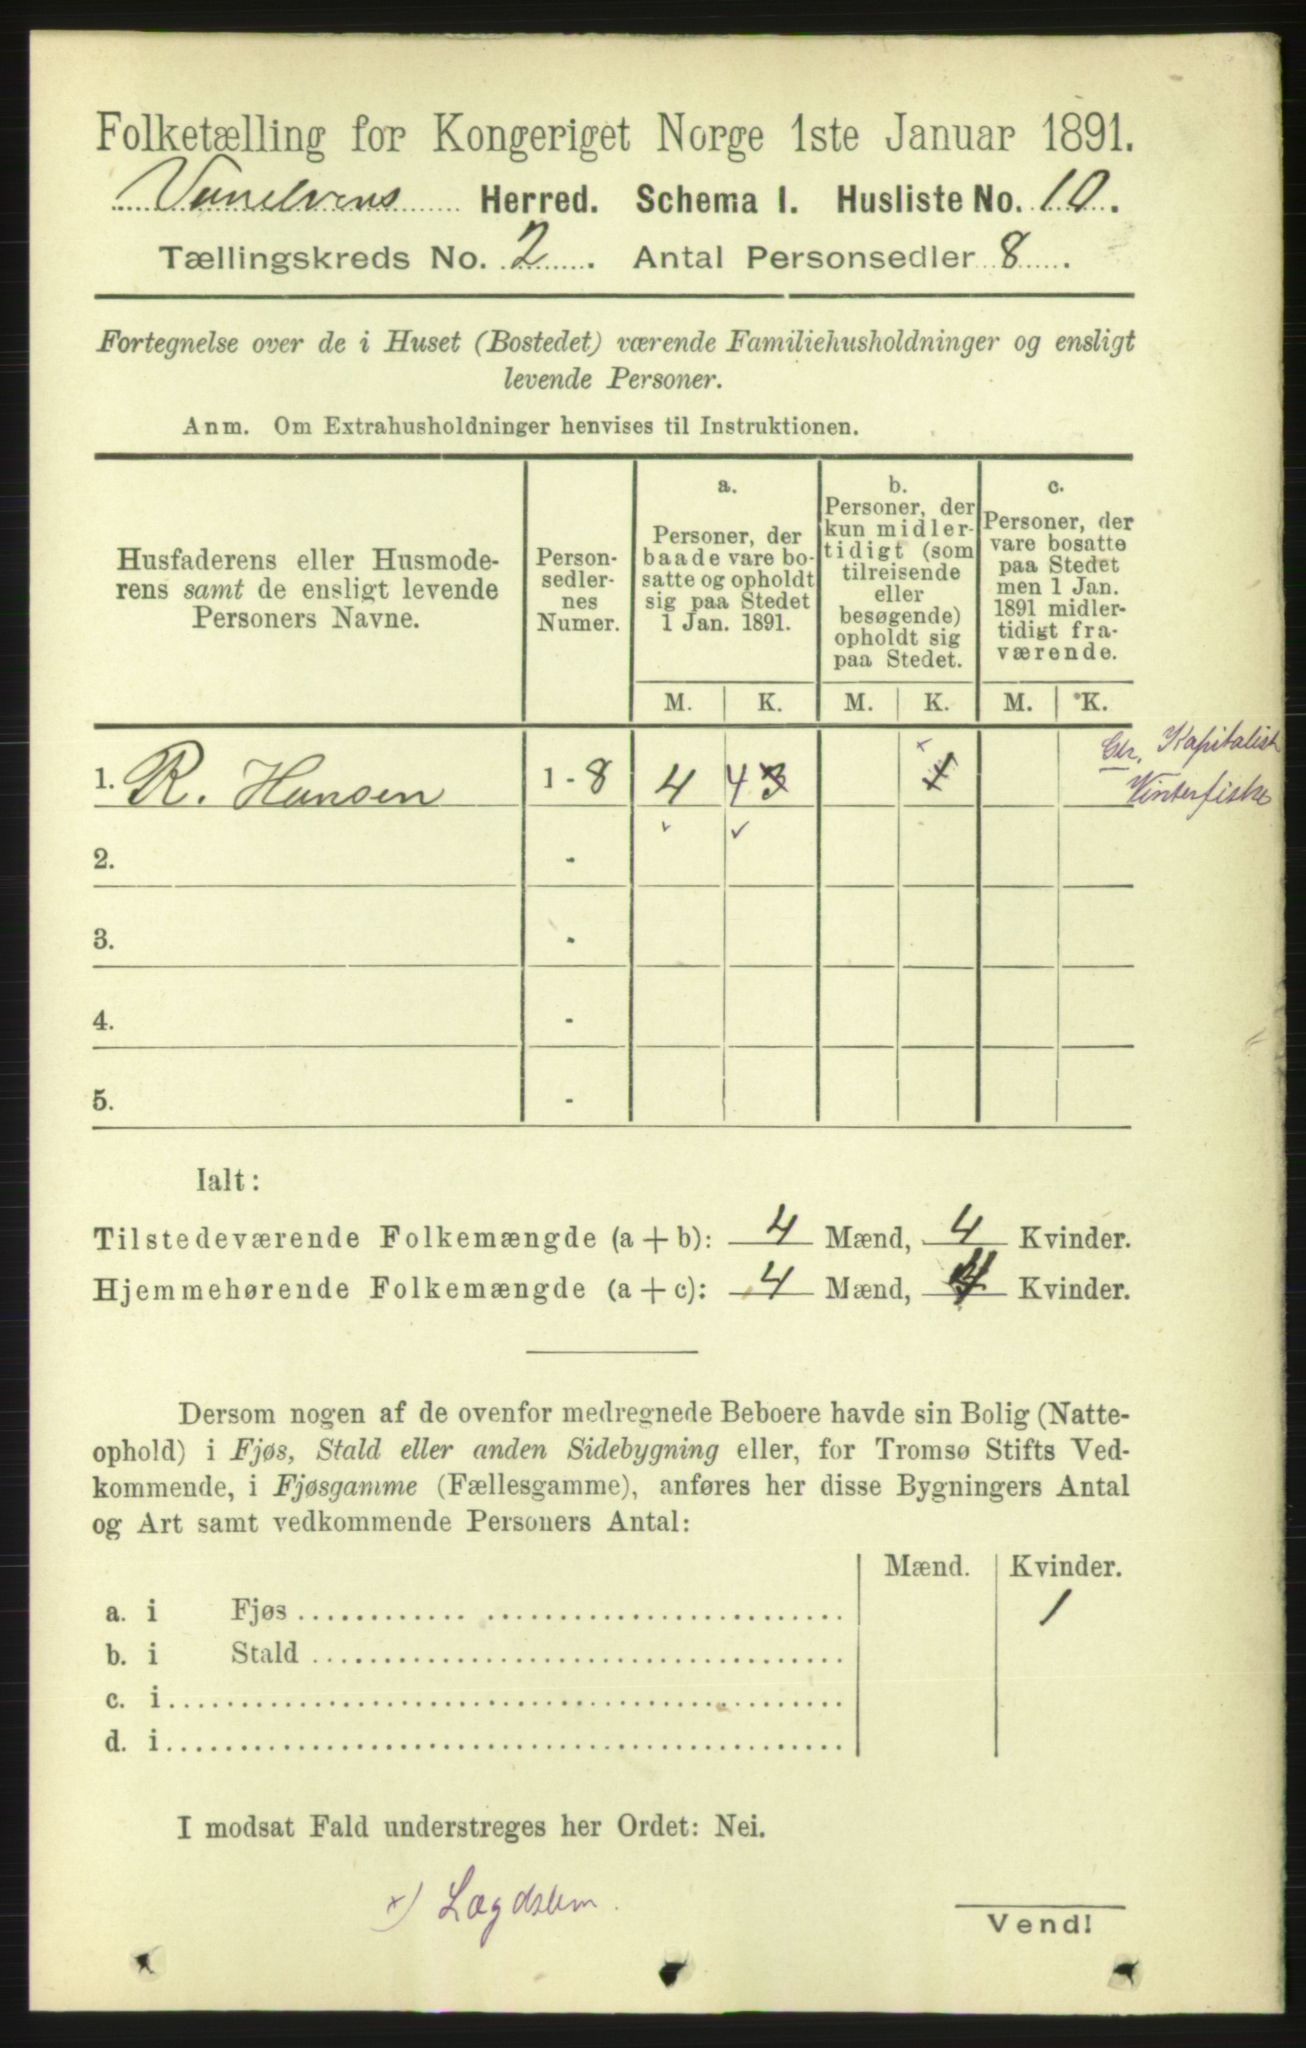 Folketælling for Kongeriget Norge 1ste Januar 1891.
Vanelvens Herred. Schema I. Husliste No. 10.
Tællingskreds No. 2. Antal Personsedler 8.
Fortegnelse over de i Huset (Bostedet) værende Familiehusholdninger og ensligt
levende Personer.
Anm. Om Extrahusholdninger henvises til Instruktionen.
Husfaderens eller Husmode-
rens samt de ensligt levende
Personers Navne.
Person-
sedler-
nes
Numer.
a.
Personer, der
baade vare bo-
satte og opholdt
sig paa Stedet
1 Jan. 1891.
b.
Personer, der
kun midler-
tidigt (som
tilreisende
eller
besøgende)
opholdt sig
paa Stedet.
c.
Personer, der
vare bosatte
paa Stedet
men 1 Jan.
1891 midler-
tidigt fra-
værende.
M. K. M. K. M. K.
1. R. Hansen 1 - 8 4 4 3 1
Kapitalist
Vinterfiske
2. -
3. -
4. -
5. -
Ialt:
Tilstedeværende Folkemængde (a + b): 4 Mænd, 4 Kvinder.
Hjemmehørende Folkemængde (a + c): 4 Mænd, 4 Kvinder.
Dersom nogen af de ovenfor medregnede Beboere havde sin Bolig (Natte-
ophold) i Fjøs, Stald eller anden Sidebygning eller, for Tromsø Stifts Ved-
kommende, i Fjøsgamme (Fællesgamme), anføres her disse Bygningers Antal
og Art samt vedkommende Personers Antal:
Mænd. Kvinder.
a. i Fjøs 1
b. i Stald
c. i
d. i
I modsat Fald understreges her Ordet: Nei.
x) Lægdslem.
Vend!